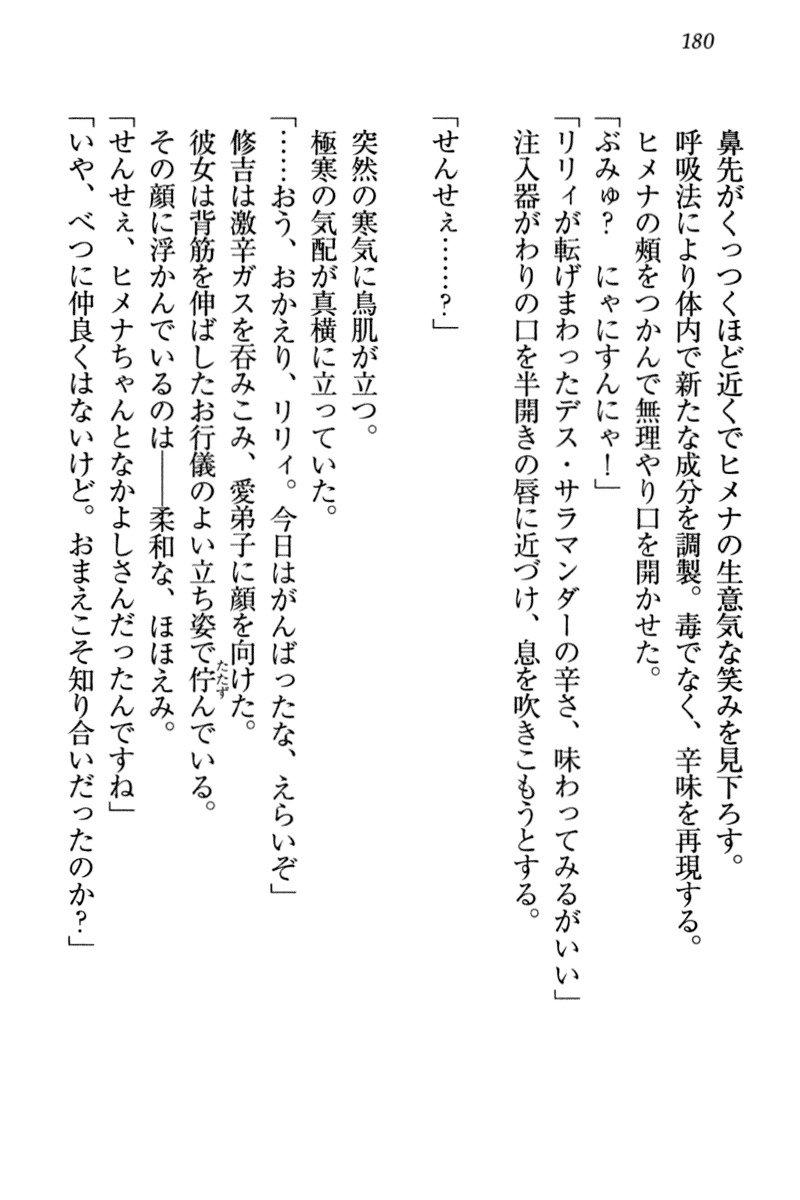 180
鼻先がくっつくほど近くでヒメナの生意気な笑みを見下ろす。
呼吸法により体内で新たな成分を調製。毒でなく、辛味を再現する。
ヒメナの頰をつかんで無理やり口を開かせた。
「ぶみゅ？　にゃにすんにゃ！」
「リリィが転げまわったデス・サラマンダーの辛さ、味わってみるがいい」
注入器がわりの口を半開きの唇に近づけ、息を吹きこもうとする。
「せんせぇ……？」
突然の寒気に鳥肌が立つ。
極寒の気配が真横に立っていた。
「……おう、おかえり、リリィ。今日はがんばったな、えらいぞ」
修吉は激辛ガスを呑みこみ、愛弟子に顔を向けた。
彼女は背筋を伸ばしたお行儀のよい立ち姿で佇たたずんでいる。
その顔に浮かんでいるのは――柔和な、ほほえみ。
「せんせぇ、ヒメナちゃんとなかよしさんだったんですね」
「いや、べつに仲良くはないけど。おまえこそ知り合いだったのか？」